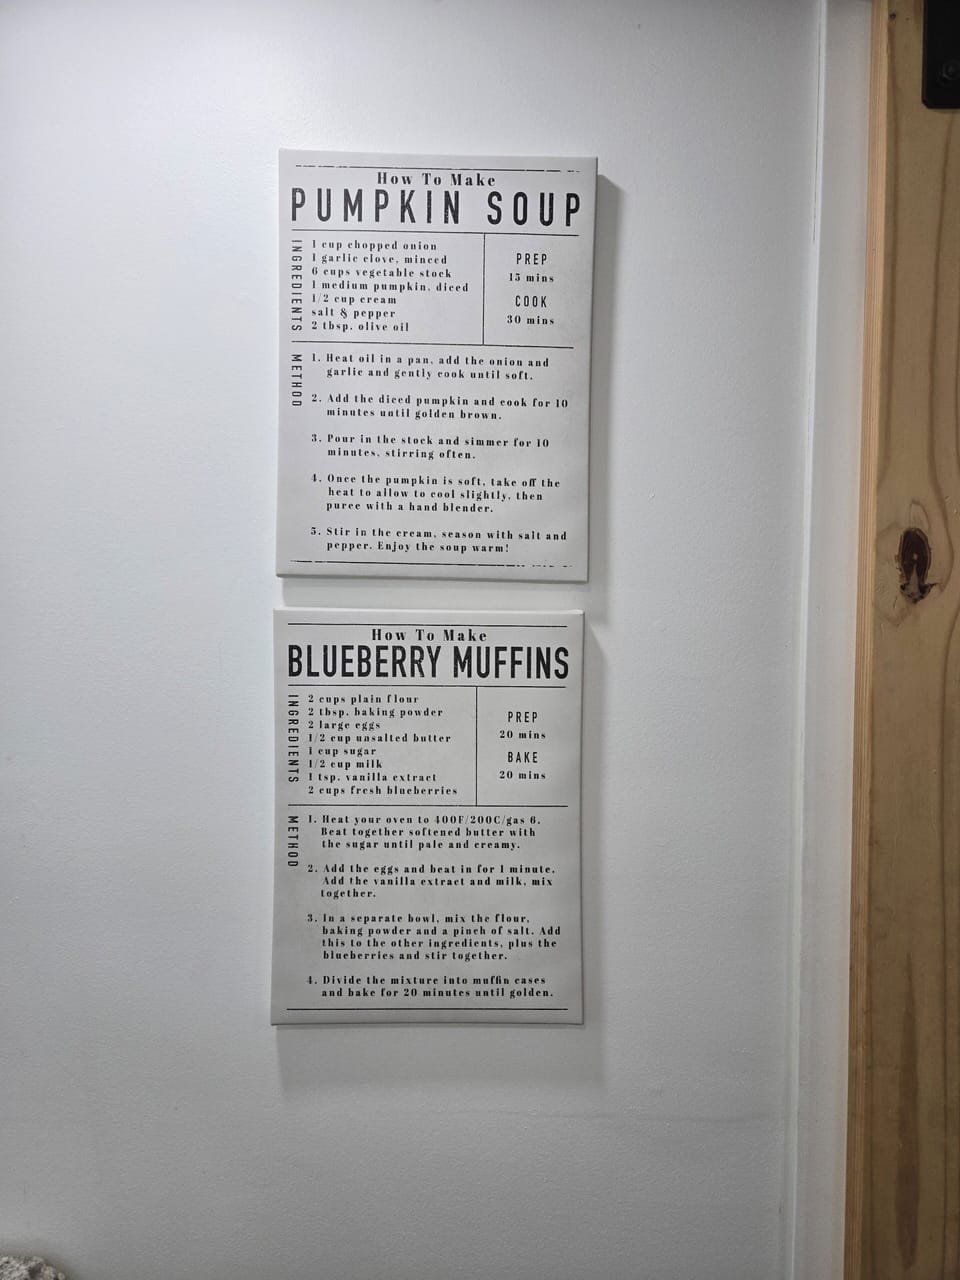 How To Make
PUMPKIN SOUP
INGREDIENTS
1 cup chopped onion
1 garlic clove, minced
6 cups vegetable stock
1 medium pumpkin, diced
1/2 cup cream
salt & pepper
2 tbsp. olive oil
PREP
15 mins
COOK
30 mins
METHOD
1. Heat oil in a pan, add the onion and
garlic and gently cook until soft.
2. Add the diced pumpkin and cook for 10
minutes until golden brown.
3. Pour in the stock and simmer for 10
minutes, stirring often.
4. Once the pumpkin is soft, take off the
heat to allow to cool slightly, then
puree with a hand blender.
5. Stir in the cream, season with salt and
pepper. Enjoy the soup warm!
How To Make
BLUEBERRY MUFFINS
INGREDIENTS
2 cups plain flour
2 tbsp. baking powder
2 large eggs
1/2 cup unsalted butter
1 cup sugar
1/2 cup milk
1 tsp. vanilla extract
2 cups fresh blueberries
PREP
20 mins
BAKE
20 mins
METHOD
1. Heat your oven to 400F/200C/gas 6.
Beat together softened butter with
the sugar until pale and creamy.
2. Add the eggs and beat in for 1 minute.
Add the vanilla extract and milk, mix
together.
3. In a separate bowl, mix the flour,
baking powder and a pinch of salt. Add
this to the other ingredients, plus the
blueberries and stir together.
4. Divide the mixture into muffin cases
and bake for 20 minutes until golden.